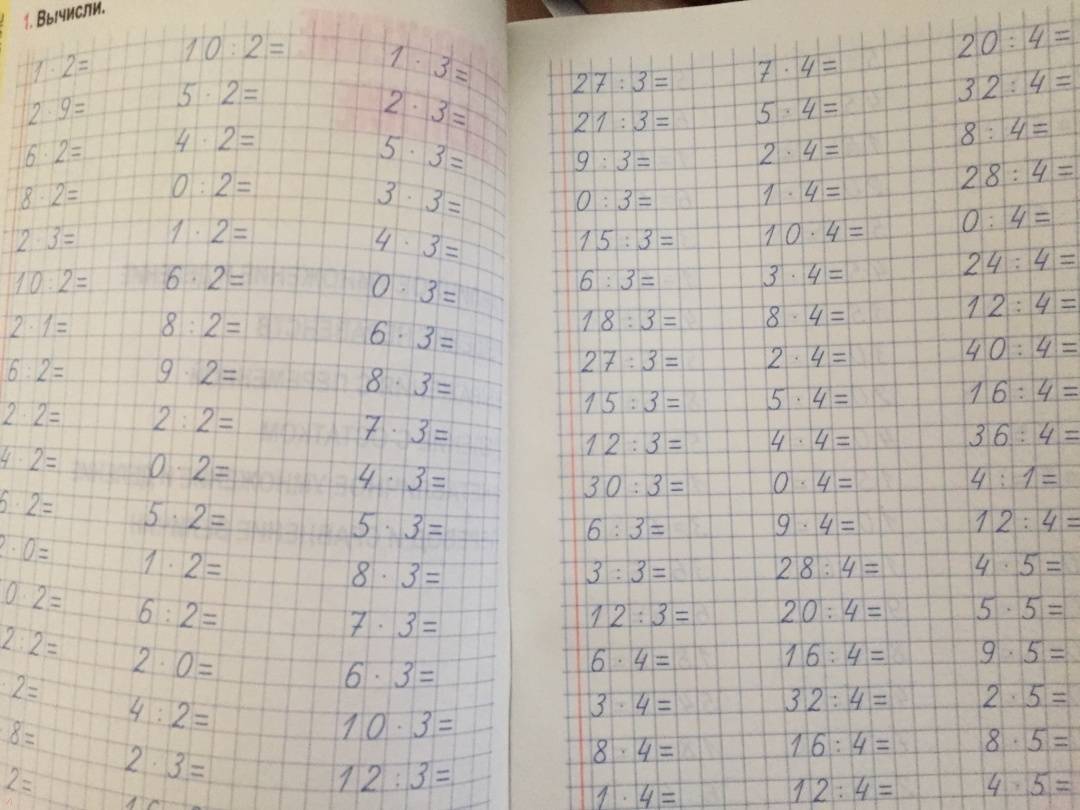 1. Вычисли.
1 · 2=
2 · 9=
6 · 2=
8 · 2=
2 · 3=
10:2=
2 · 1=
6:2=
2 · 2=
4 · 2=
6 · 2=
2 · 0=
0·2=
2:2=
· 2=
· 8=
2=
10 : 2=
5 · 2=
4 · 2=
0 : 2=
1 · 2=
6 · 2=
8 : 2=
9 · 2=
2 : 2=
0 · 2=
5 · 2=
1 · 2=
6 : 2=
2 · 0=
4 : 2=
2 · 3=
1 · 3=
2 · 3=
5 · 3=
3 · 3=
4 · 3=
0 · 3=
6 · 3=
8 · 3=
7 · 3=
4 · 3=
5 · 3=
8 · 3=
7 · 3=
6 · 3=
10 · 3=
12 : 3=
27 : 3=
21 : 3=
9 : 3=
0 : 3=
15 : 3=
6 : 3=
18 : 3=
27 : 3=
15 : 3=
12 : 3=
30 : 3=
6 : 3=
3 : 3=
12 : 3=
6 · 4=
3 · 4=
8 · 4=
1 · 4=
7 · 4=
5 · 4=
2 · 4=
1 · 4=
10 · 4=
3 · 4=
8 · 4=
2 · 4=
5 · 4=
4 · 4=
0 · 4=
9 · 4=
28 : 4=
20 : 4=
16 : 4=
32 : 4=
16 : 4=
12 : 4=
20 : 4=
32 : 4=
8 : 4=
28 : 4=
0 : 4=
24 : 4=
12 : 4=
40 : 4=
16 : 4=
36 : 4=
4 : 1=
12 : 4=
4 · 5=
5 · 5=
9 · 5=
2 · 5=
8 · 5=
4 · 5=